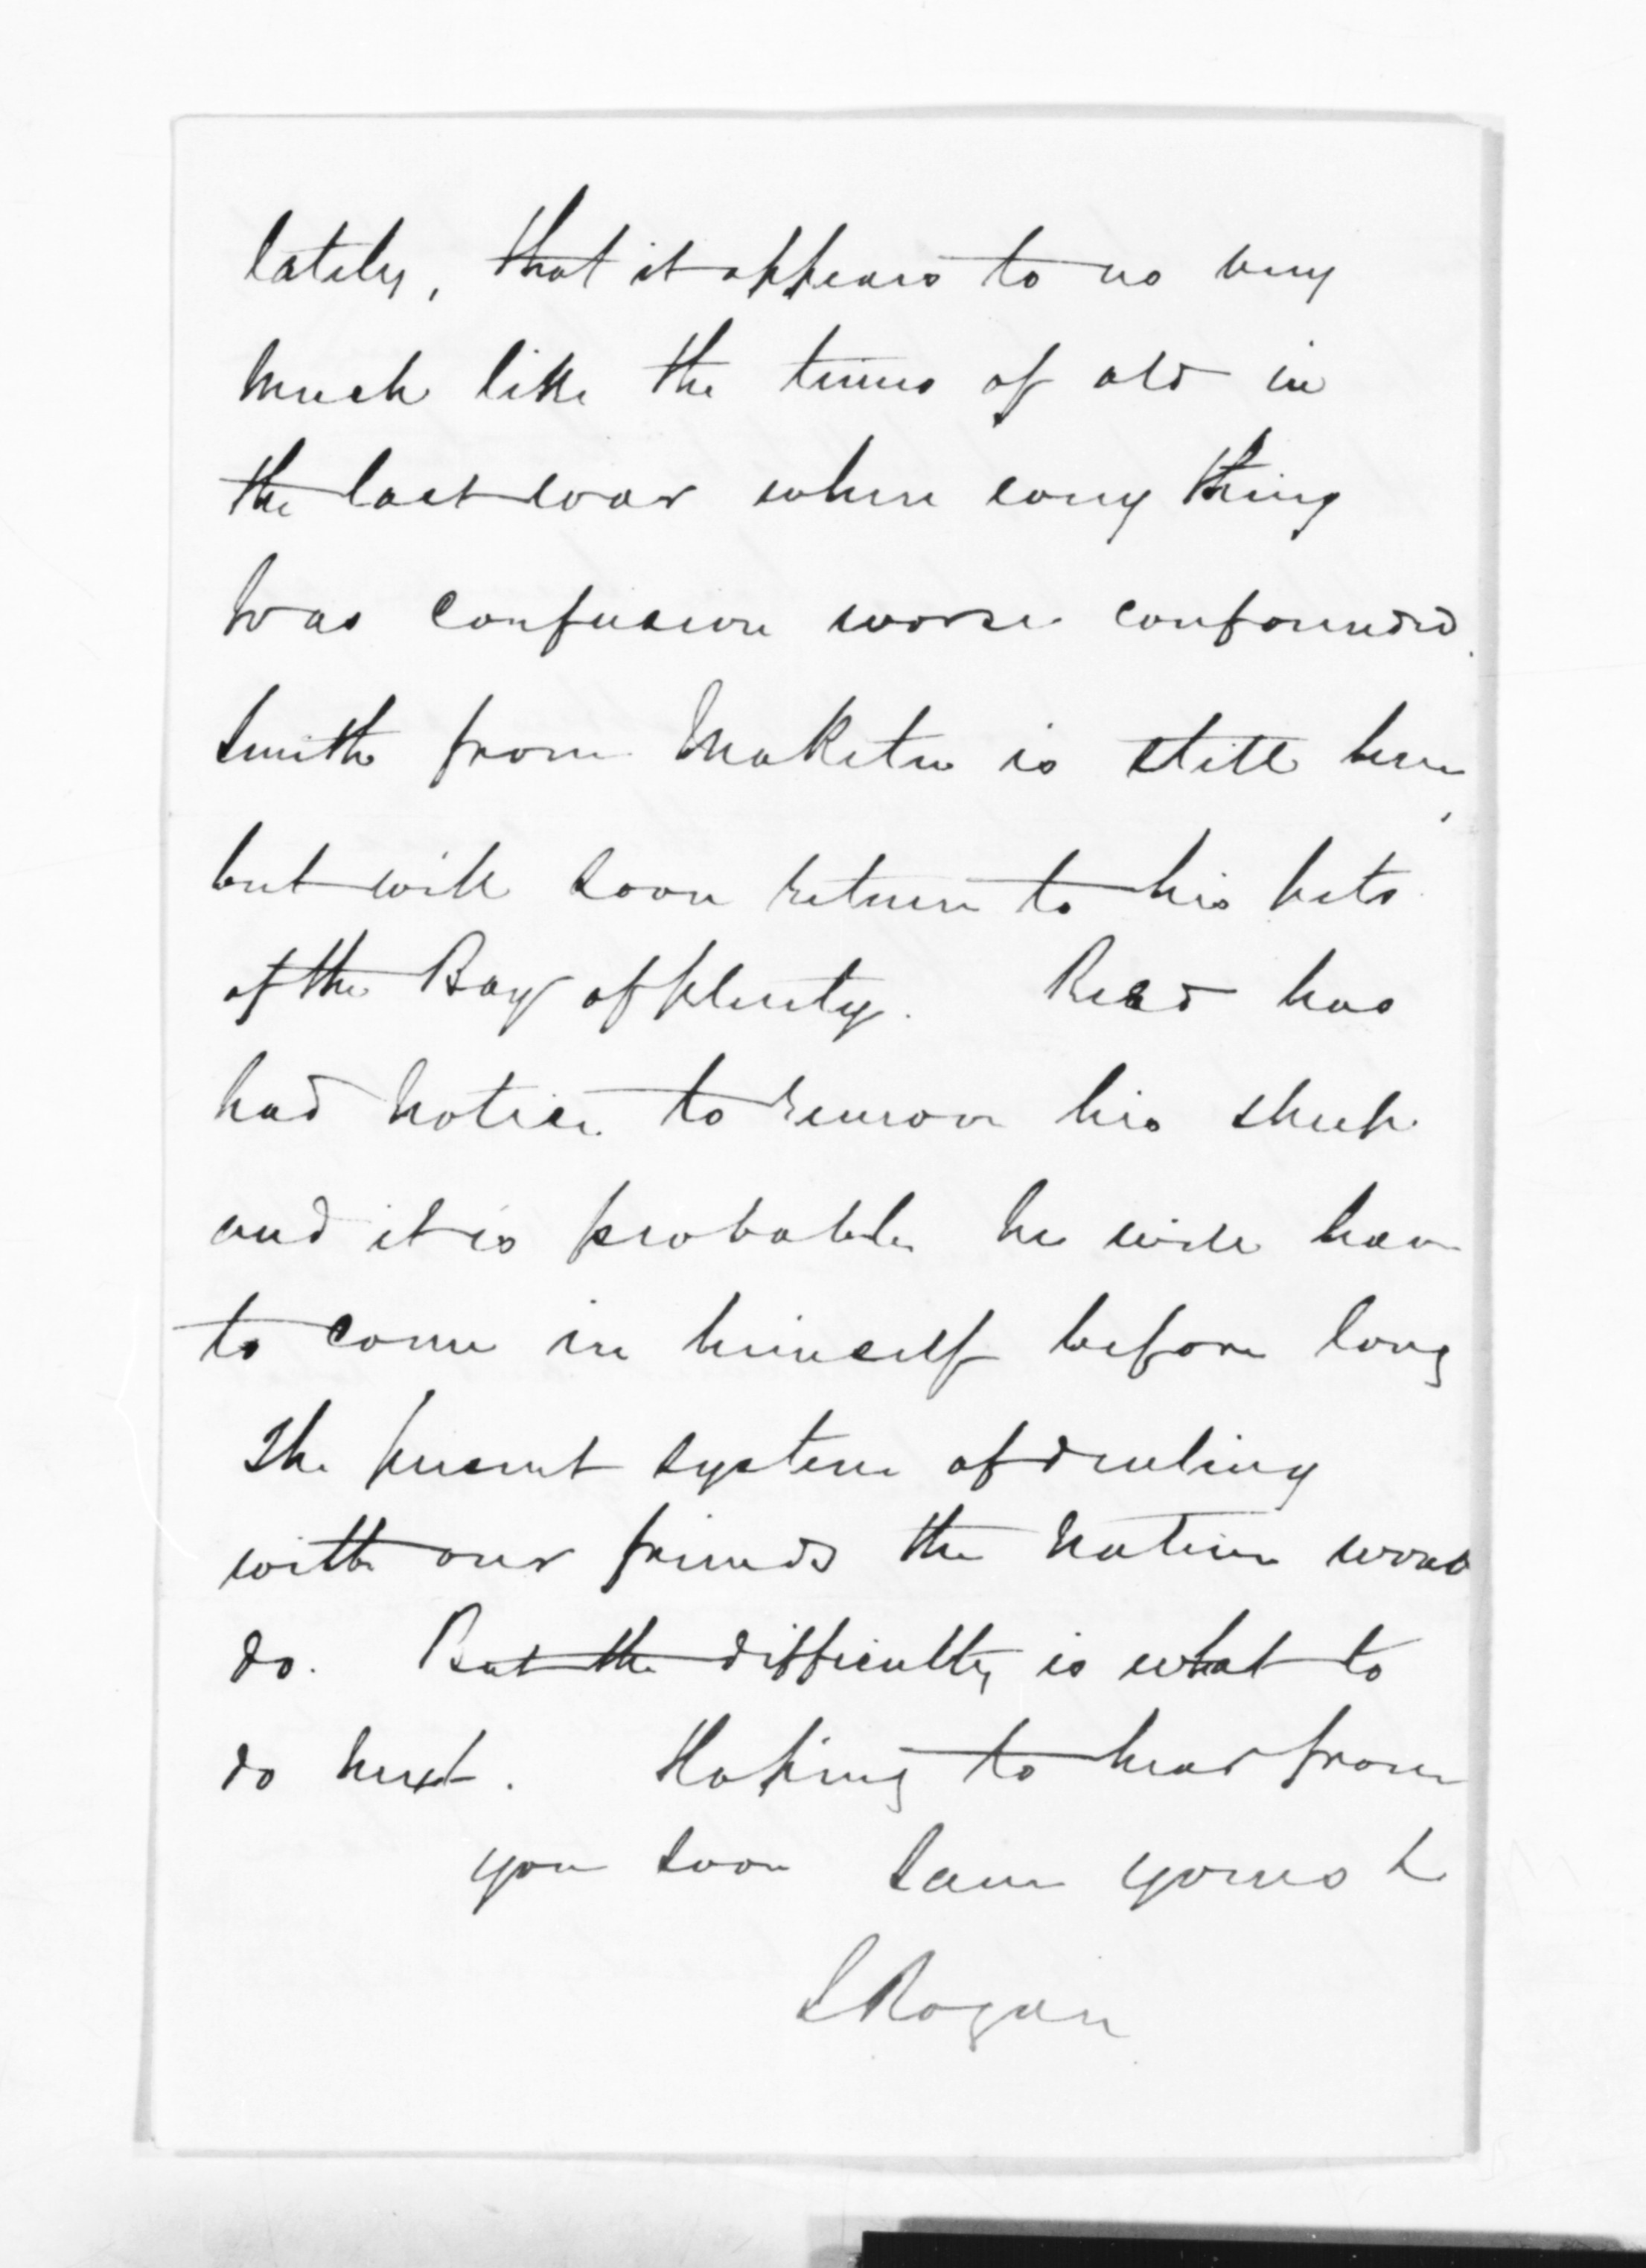 lately, that it appears to us very
much like the times of old in
the last war where every thing
was confusion worse confounded.
Smith from Maketu is still here,
but will soon return to his pets
of the Bay of plenty. Read has
had notice to remove his sheep
and it is probable he will have
to come in himself before long
The present system of dealing
with our friends the natives wont
do. But the difficulty is what to
do next. Hoping to hear from
you soon I am yours
J Rogan